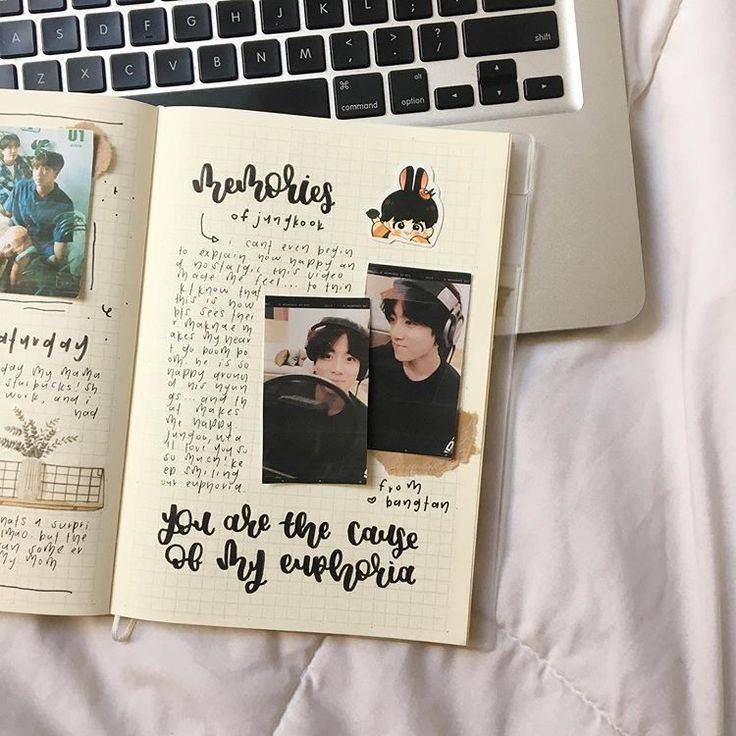 A S D F G H J K L
Z X C V B N M < , > . ? / shift
⌘ command alt option
U1
aturday
day my mama
starbucks! sh
work, and i
had
hats a surpri
lmao. but the
an some er
my mom
memories
of jungkook
i cant even begin
to explain how happy an
d nostalgic this video
made me feel... to thin
k/know that
this is how
bts sees thei
r maknae m
akes my hear
t go boom bo
om. he is so
happy aroun
d his hyun
gs... and th
at makes
me happy.
I love you so
so much! ke
ep smiling
our euphoria
from
♡ bangtan
you are the cause
of my euphoria